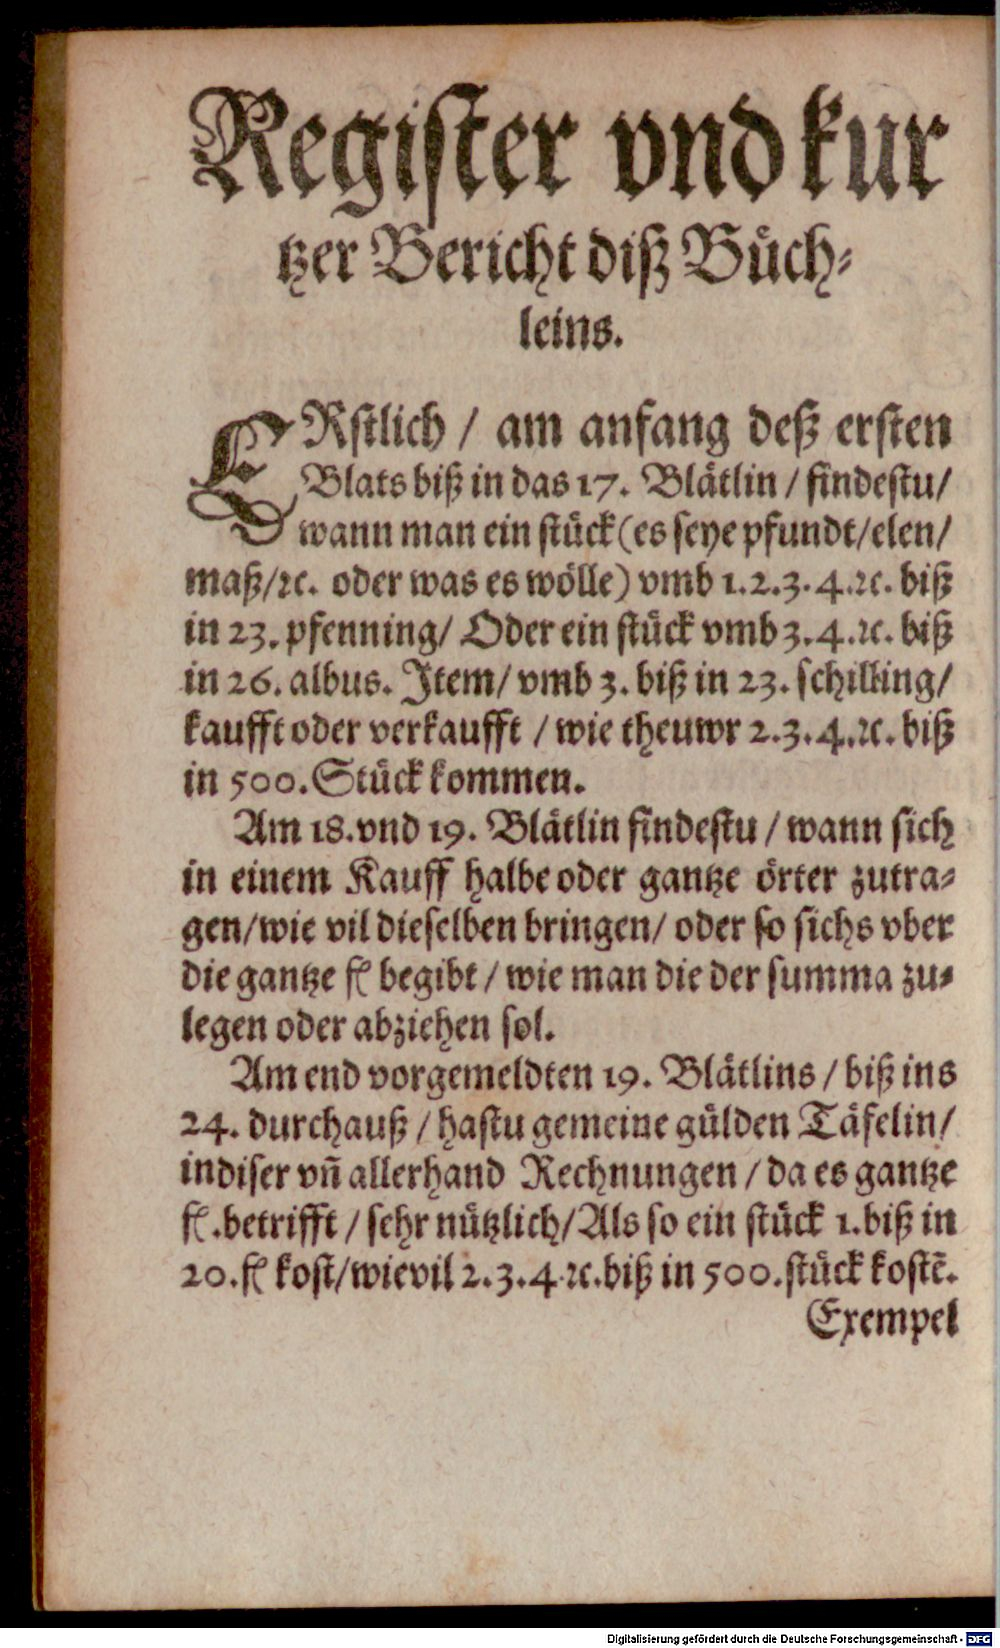 Register vnd kur
tzer Bericht diß Büch⸗
leins.
ERstlich / am anfang deß ersten
Blats biß in das 17. Blätlin / findestu /
wann man ein stück (es seye pfundt / elen /
maß / ꝛc. oder was es wölle) vmb 1. 2. 3. 4. ꝛc. biß
in 23. pfenning / Oder ein stück vmb 3. 4. ꝛc. biß
in 26. albus. Item / vmb 3. biß in 23. schilling /
kaufft oder verkaufft / wie theuwr 2. 3. 4. ꝛc. biß
in 500. Stück kommen.
Am 18. vnd 19. Blätlin findestu / wann sich
in einem Kauff halbe oder gantze örter zutra⸗
gen / wie vil dieselben bringen / oder so sichs vber
die gantze fl begibt / wie man die der summa zu⸗
legen oder abziehen sol.
Am end vorgemeldten 19. Blätlins / biß ins
24. durchauß / hastu gemeine gülden Täfelin /
in diser vñ allerhand Rechnungen / da es gantze
fl. betrifft / sehr nützlich / Als so ein stück 1. biß in
20. fl kost / wie vil 2. 3. 4. ꝛc. biß in 500. stück kostẽ.
Exempel
Digitalisierung gefördert durch die Deutsche Forschungsgemeinschaft - DFG